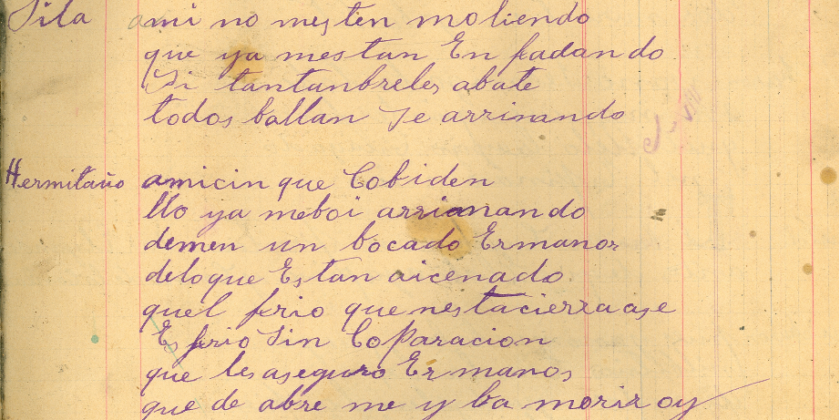 Jila ami no mesten moliendo
que ya mestan Enfadando
Si tantanbreles abate
todos ballan Se arrimando
Hermitaño amicin que Cobiden
llo ya meboi arrimanando
demen un bocado Ermanos
deloque Estan aicenado
quel frio que nestacierraase
Es frio Sin Coparacion
que lesaseguro Ermanos
que de abre me y ba morir oy